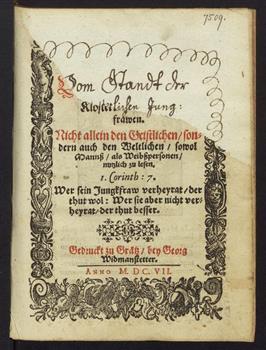 7509.
Vom Standt der
Klösterlichen Jung:
frawen.
Nicht allein den Geistlichen / son-
dern auch den Weltlichen / sowol
Manns / als Weibspersonen /
nutzlich zu lesen.
1. Corinth: 7.
Wer sein Jungkfraw verheyrat / der
thut wol: Wer sie aber nicht ver-
heyrat / der thut besser.
Gedruckt zu Grätz / bey Georg
Widmanstetter.
ANNO M. DC. VII.